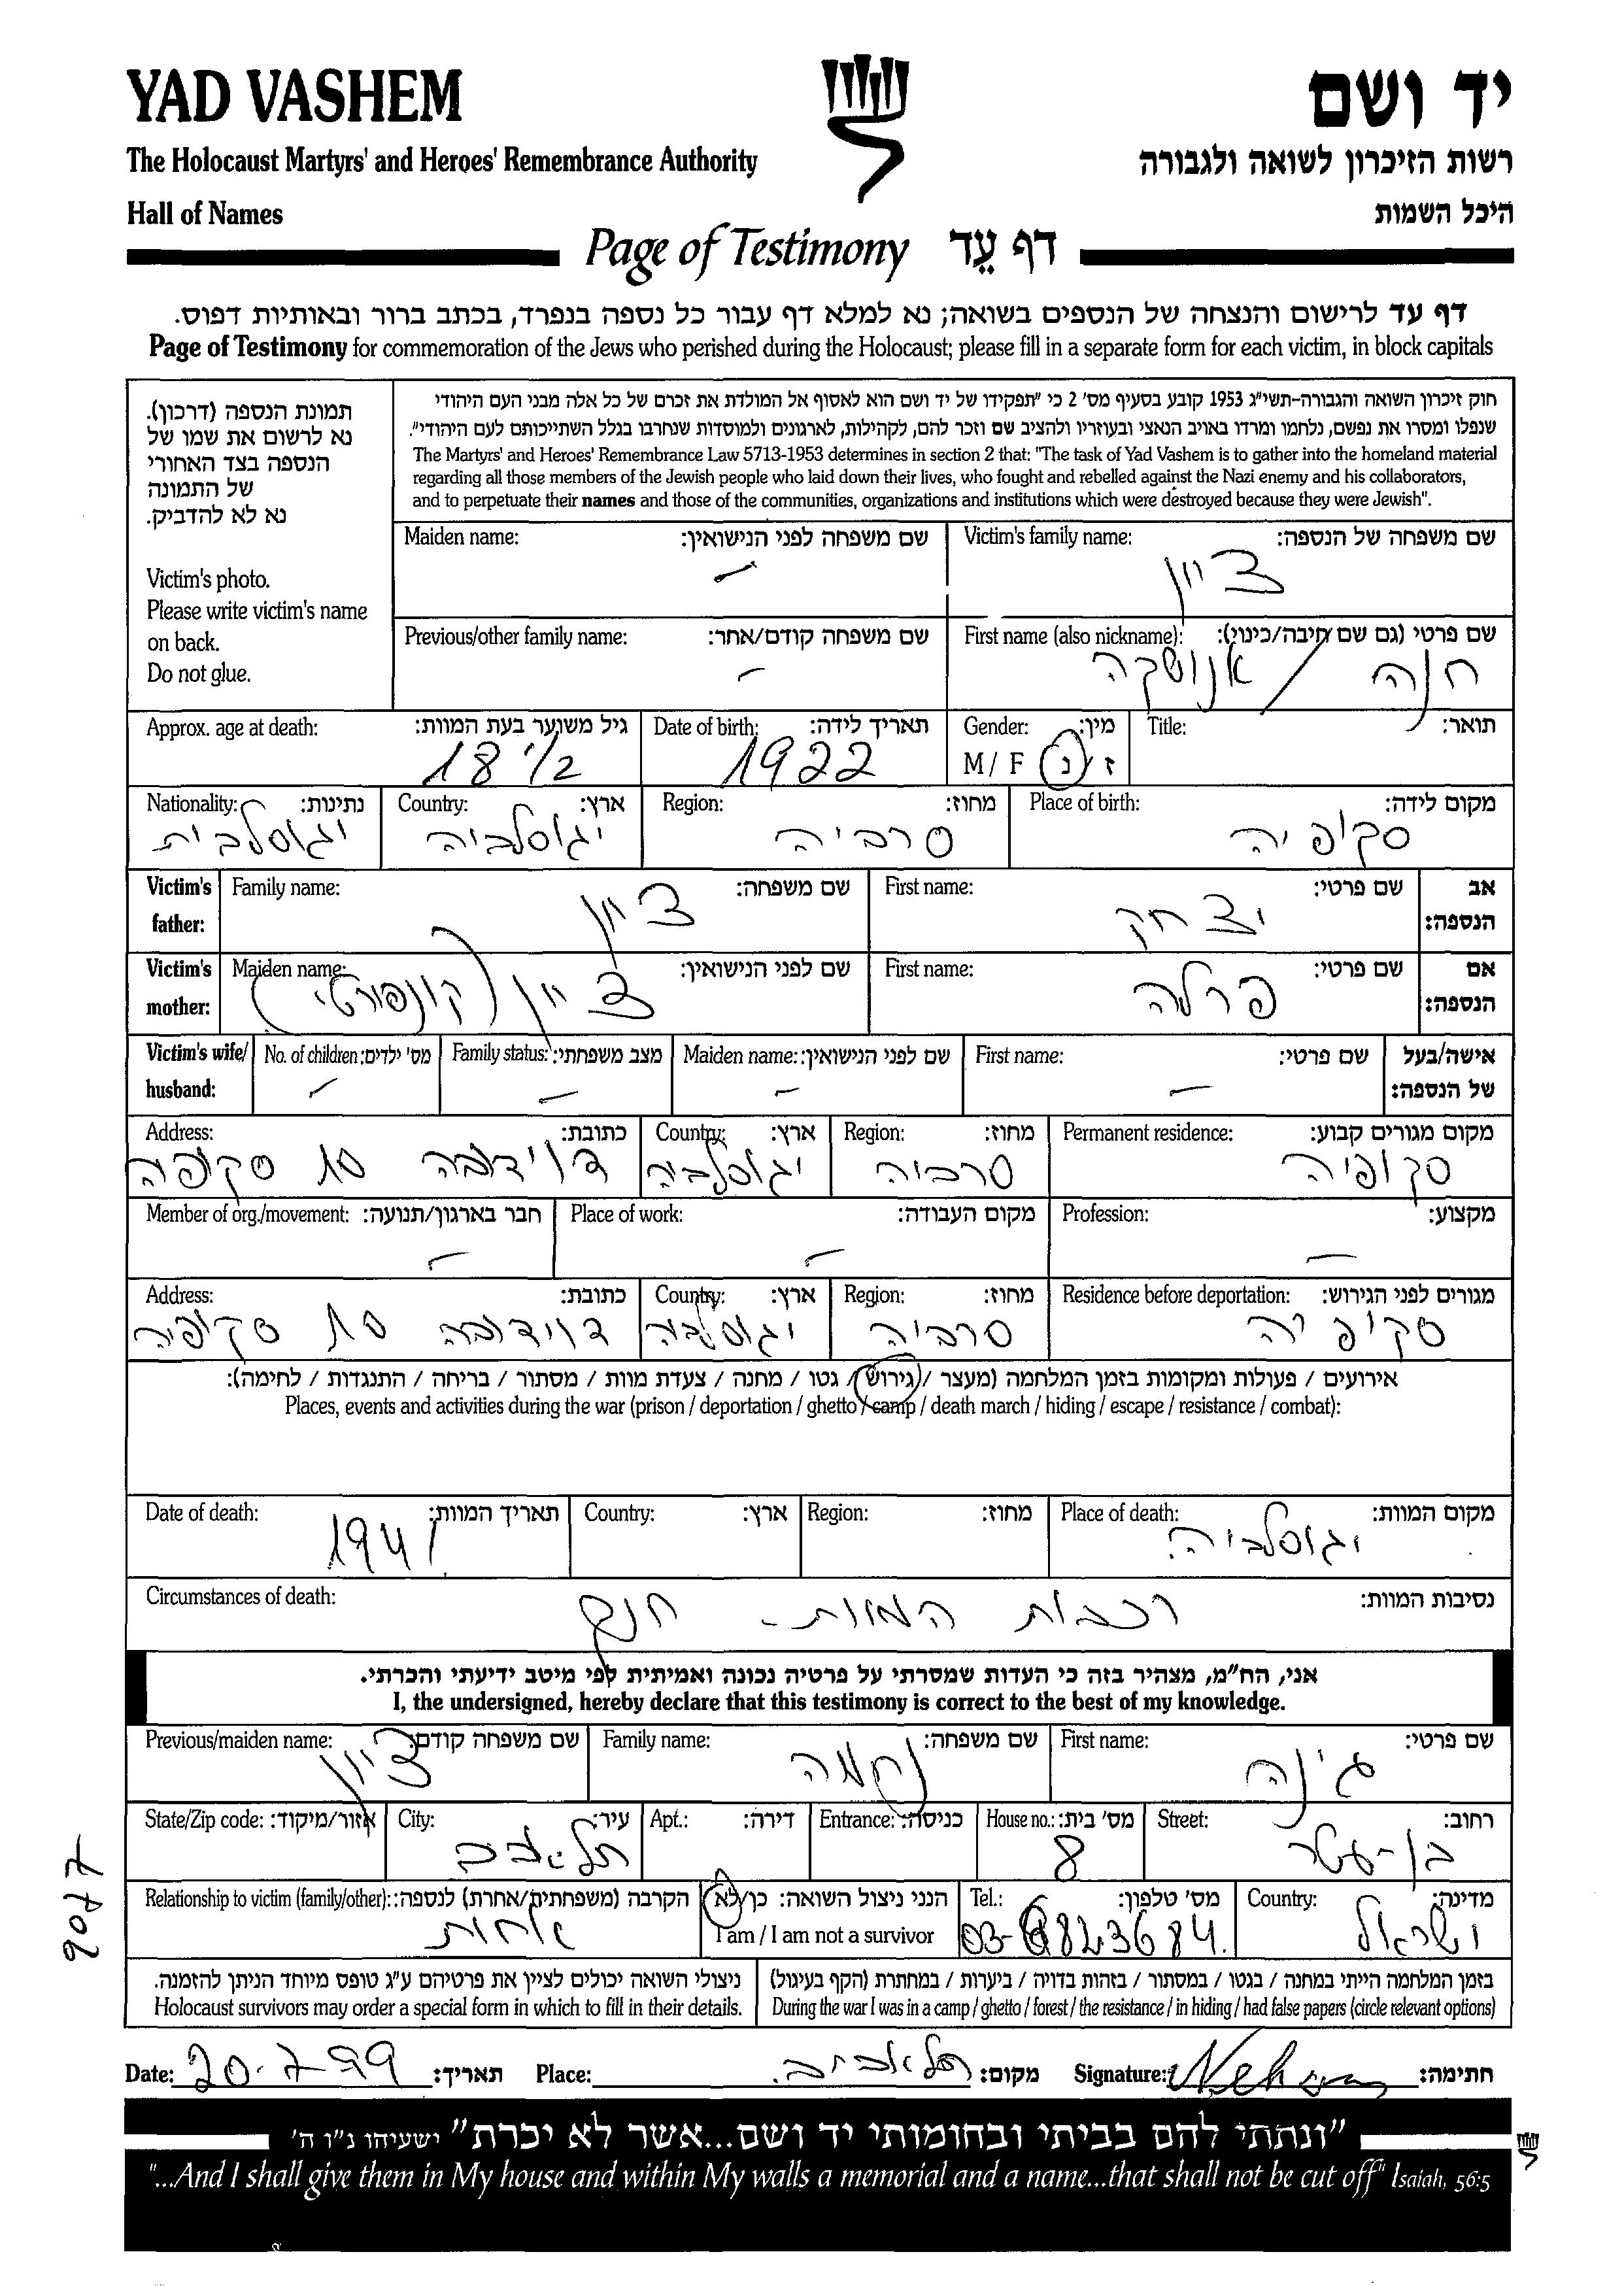 YAD VASHEM
יד ושם
The Holocaust Martyrs' and Heroes' Remembrance Authority
רשות הזיכרון לשואה ולגבורה
Hall of Names
היכל השמות
Page of Testimony דף עֵד
דף עד לרישום והנצחה של הנספים בשואה; נא למלא דף עבור כל נספה בנפרד, בכתב ברור ובאותיות דפוס.
Page of Testimony for commemoration of the Jews who perished during the Holocaust; please fill in a separate form for each victim, in block capitals
תמונת הנספה (דרכון).
נא לרשום את שמו של
הנספה בצד האחורי
של התמונה
נא לא להדביק.
Victim's photo.
Please write victim's name
on back.
Do not glue.
חוק זיכרון השואה והגבורה-תשי"ג 1953 קובע בסעיף מס' 2 כי "תפקידו של יד ושם הוא לאסוף אל המולדת את זכרם של כל אלה מבני העם היהודי
שנפלו ומסרו את נפשם, נלחמו ומרדו באויב הנאצי ובעוזריו ולהציב שם וזכר להם, לקהילות, לארגונים ולמוסדות שנחרבו בגלל השתייכותם לעם היהודי".
The Martyrs' and Heroes' Remembrance Law 5713-1953 determines in section 2 that: "The task of Yad Vashem is to gather into the homeland material
regarding all those members of the Jewish people who laid down their lives, who fought and rebelled against the Nazi enemy and his collaborators,
and to perpetuate their names and those of the communities, organizations and institutions which were destroyed because they were Jewish".
שם משפחה של הנספה: Victim's family name:
ציון
שם משפחה לפני הנישואין: Maiden name:
–
שם פרטי (גם שם חיבה/כינוי): First name (also nickname):
חנה / אנושקה
שם משפחה קודם/אחר: Previous/other family name:
–
תואר: Title:
מין: Gender:
ז / נ M / F
תאריך לידה: Date of birth:
1922
גיל משוער בעת המוות: Approx. age at death:
18 1/2
מקום לידה: Place of birth:
סקופיה
מחוז: Region:
סרביה
ארץ: Country:
יגוסלביה
נתינות: Nationality:
יגוסלבית
אב הנספה: Victim's father:
שם פרטי: First name:
יצחק
שם משפחה: Family name:
ציון
אם הנספה: Victim's mother:
שם פרטי: First name:
פרלה
שם לפני הנישואין: Maiden name:
ציון (קונפורטי)
אישה/בעל של הנספה: Victim's wife/ husband:
שם פרטי: First name:
–
שם לפני הנישואין: Maiden name:
–
מצב משפחתי: Family status:
–
מס' ילדים: No. of children:
–
מקום מגורים קבוע: Permanent residence:
סקופיה
מחוז: Region:
סרביה
ארץ: Country:
יגוסלביה
כתובת: Address:
סקופיה
מקצוע: Profession:
–
מקום העבודה: Place of work:
–
חבר בארגון/תנועה: Member of org./movement:
–
מגורים לפני הגירוש: Residence before deportation:
סקופיה
מחוז: Region:
סרביה
ארץ: Country:
יגוסלביה
כתובת: Address:
סקופיה
אירועים / פעולות ומקומות בזמן המלחמה (מעצר / גירוש / גטו / מחנה / צעדת מוות / מסתור / בריחה / התנגדות / לחימה):
Places, events and activities during the war (prison / deportation / ghetto / camp / death march / hiding / escape / resistance / combat):
מקום המוות: Place of death:
יגוסלביה.
מחוז: Region:
ארץ: Country:
תאריך המוות: Date of death:
1941
נסיבות המוות: Circumstances of death:
רכבות המוות - חנק
אני, הח"מ, מצהיר בזה כי העדות שמסרתי על פרטיה נכונה ואמיתית לפי מיטב ידיעתי והכרתי.
I, the undersigned, hereby declare that this testimony is correct to the best of my knowledge.
שם פרטי: First name:
ג'ינה
שם משפחה: Family name:
נחמה
שם משפחה קודם: Previous/maiden name:
ציון
רחוב: Street:
בן-עטר
מס' בית: House no.:
8
כניסה: Entrance:
דירה: Apt.:
עיר: City:
תל אביב
אזור/מיקוד: State/Zip code:
מדינה: Country:
ישראל
מס' טלפון: Tel.:
03-6823684.
הנני ניצול השואה: כן/לא
I am / I am not a survivor
הקרבה (משפחתית/אחרת) לנספה: Relationship to victim (family/other):
אחות
בזמן המלחמה הייתי במחנה / בגטו / במסתור / בזהות בדויה / ביערות / במחתרת (הקף בעיגול)
During the war I was in a camp / ghetto / forest / the resistance / in hiding / had false papers (circle relevant options)
ניצולי השואה יכולים לציין את פרטיהם ע"ג טופס מיוחד הניתן להזמנה.
Holocaust survivors may order a special form in which to fill in their details.
חתימה: Signature:
מקום: תל אביב. Place:
תאריך: 20.7.99 Date:
"ונתתי להם בביתי ובחומותי יד ושם...אשר לא יכרת" ישעיהו נ"ו ה'
"...And I shall give them in My house and within My walls a memorial and a name...that shall not be cut off" Isaiah, 56:5